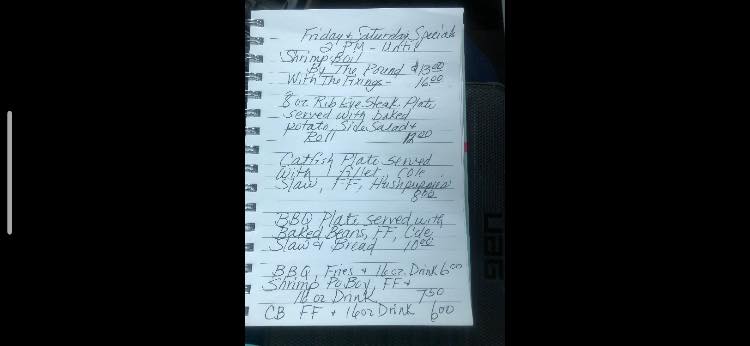 Friday & Saturday Specials
2 PM - Until
Shrimp Boil
By The Pound $13.00
With The Fixings - 16.00
8 oz Rib Eye Steak Plate
served with baked
potato, Side Salad &
Roll 12.00
Catfish Plate served
With 1 fillet, Cole
Slaw, FF, Hushpuppies
8.00
BBQ Plate served with
Baked Beans, FF, Cole
Slaw & Bread 10.00
BBQ, Fries & 16 oz. Drink 6.00
Shrimp PoBoy, FF &
16 oz Drink 7.50
CB FF & 16 oz Drink 6.00